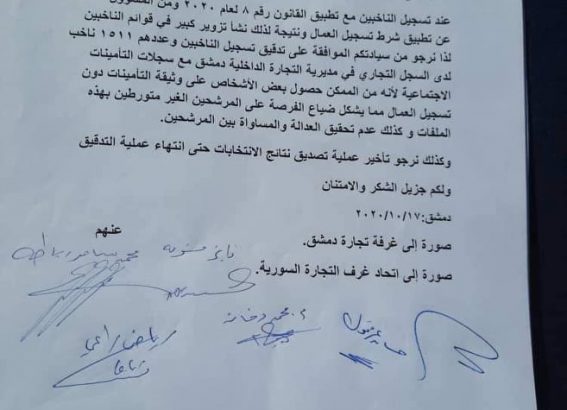 عند تسجيل الناخبين مع تطبيق القانون رقم ٨ لعام ٢٠٢٠ ومن المسؤول
عن تطبيق شرط تسجيل العمال ونتيجة لذلك نشأ تزوير كبير في قوائم الناخبين
لذا نرجو من سيادتكم الموافقة على تدقيق تسجيل الناخبين وعددهم ١٥١١ ناخب
لدى السجل التجاري في مديرية التجارة الداخلية دمشق مع سجلات التأمينات
الاجتماعية لأنه من الممكن حصول بعض الأشخاص على وثيقة التأمينات دون
تسجيل العمال مما يشكل ضياع الفرصة على المرشحين الغير متورطين بهذه
الملفات و كذلك عدم تحقيق العدالة والمساواة بين المرشحين.
وكذلك نرجو تأخير عملية تصديق نتائج الانتخابات حتى انتهاء عملية التدقيق
ولكم جزيل الشكر والامتنان
دمشق:٢٠٢٠/١٠/١٧
عنهم
صورة إلى غرفة تجارة دمشق.
صورة إلى اتحاد غرف التجارة السورية.